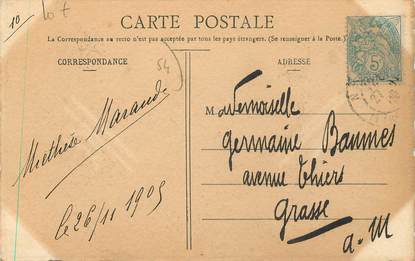 10
10 f
CARTE POSTALE
La Correspondance au recto n'est pas acceptée par tous les pays étrangers. (Se renseigner à la Poste.)
CORRESPONDANCE
ADRESSE
54
5
Maraude
le 26/11 1905
Mademoiselle
Germaine Baumes
avenue Thiers
Grasse
a-M